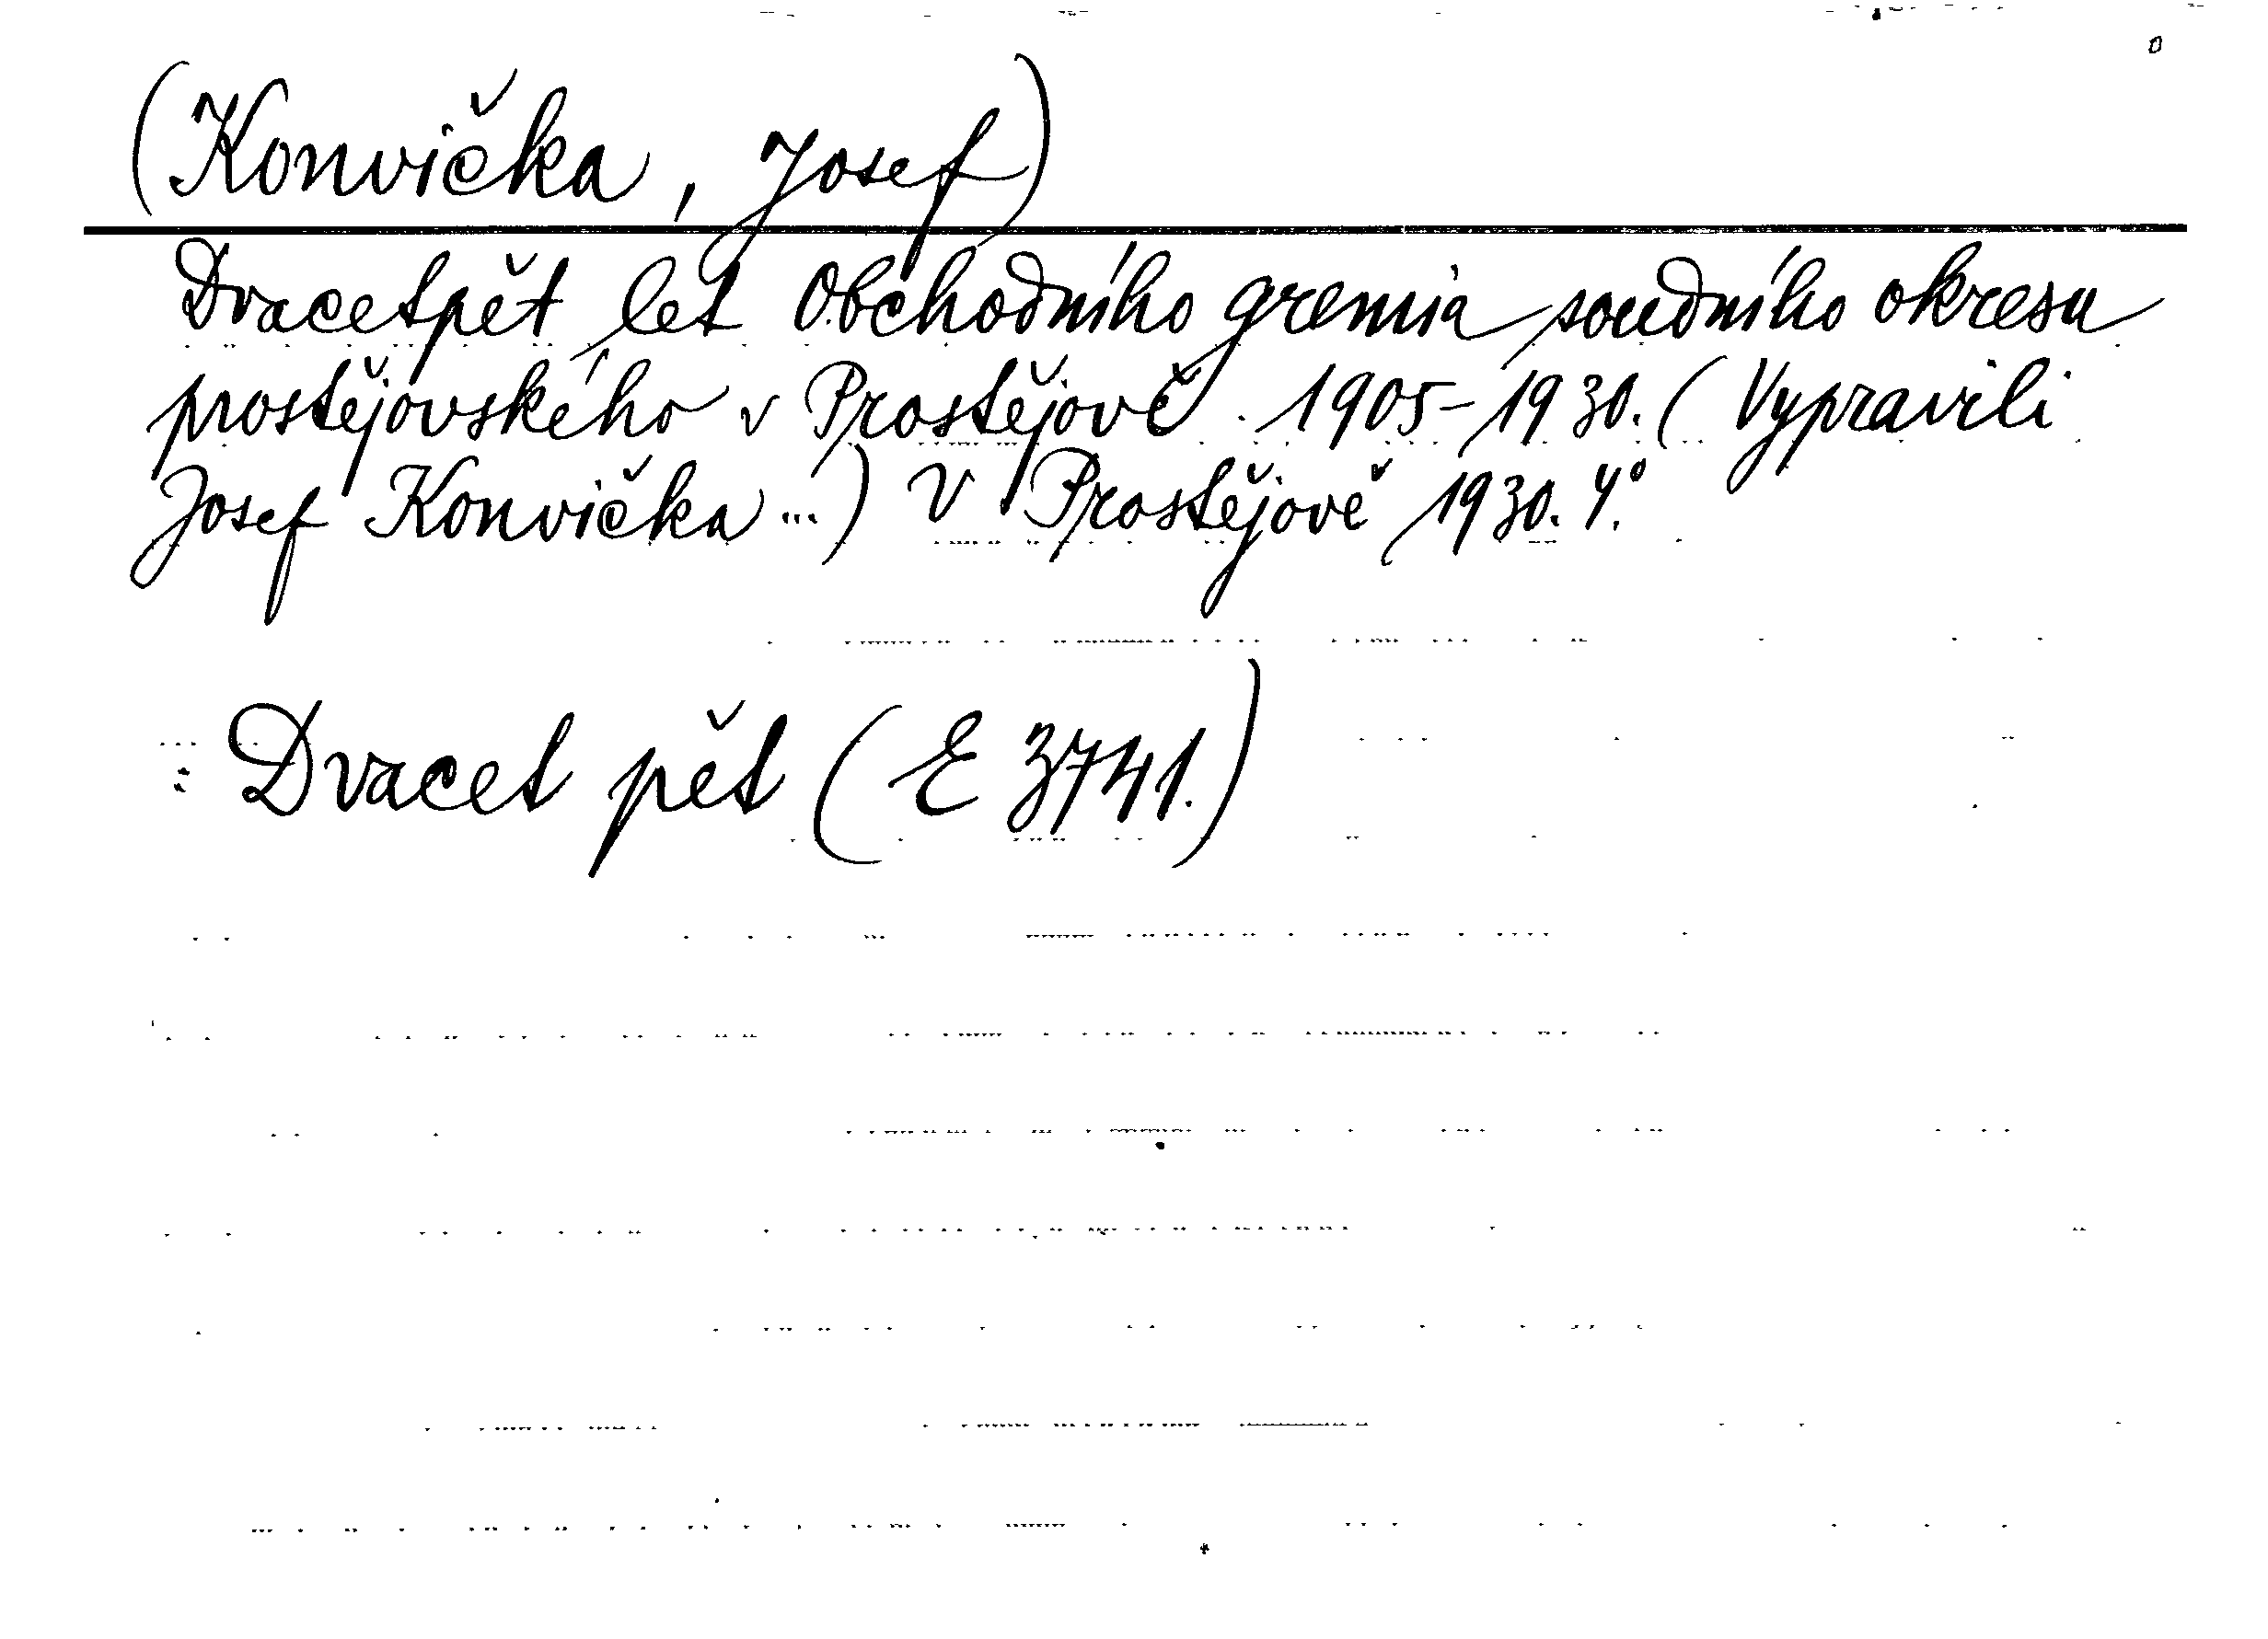 (Konvička, Josef)
Dvacetpět let Obchodního gremia soudního okresu
prostějovského v Prostějově. 1905-1930. (Vypravili
Josef Konvička...) V Prostějově 1930. 4°.
Dvacet pět (E 3741.)